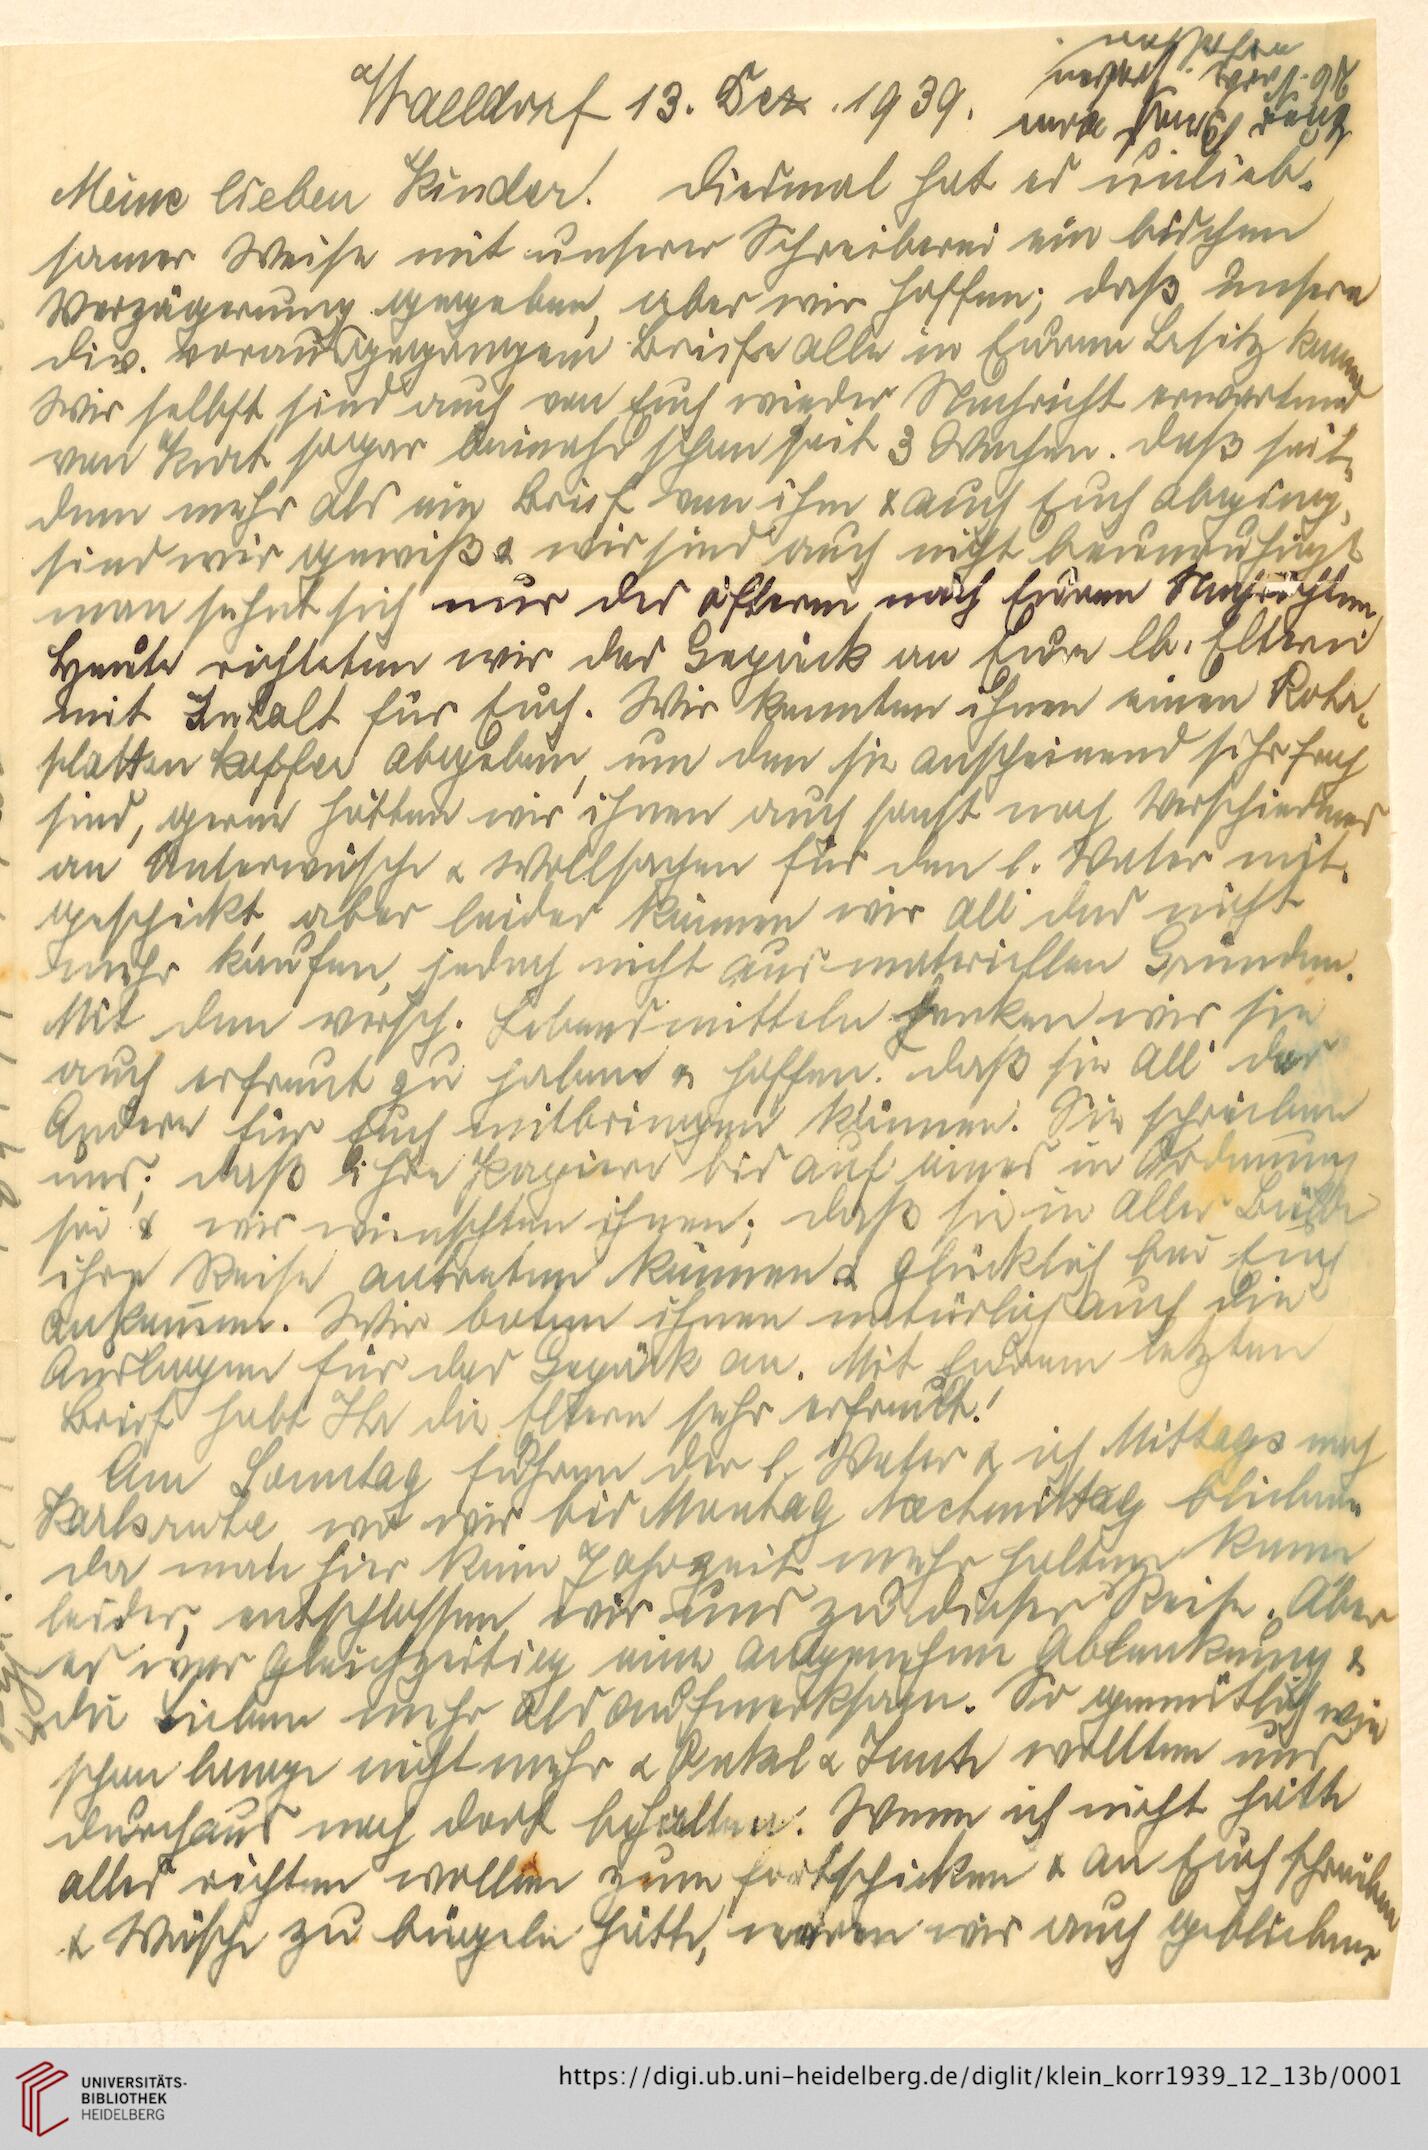 Walldorf 13. Dez. 1939.
Meine lieben Kinder! Diesmal hat es unlieb-
samer Weise mit unserer Schreiberei ein bischen
Verzögerung gegeben, aber wir hoffen; daß unsere
div. vorausgegangenen Briefe alle in Euren Besitz kamen
Wir selbst sind auch von Euch wieder Nachricht erwartend
von Kurt sogar beinahe schon seit 3 Wochen. Daß seit-
dem mehr als ein Brief von ihm & auch Euch abging,
sind wir gewiß & wir sind auch nicht beunruhigt
man sehnt sich nur des öfteren nach Euren Nachrichten
Heute richteten wir das Gepäck an Eure lb. Eltern
mit Inhalt für Euch. Wir konnten ihnen einen Rohr-
platten Koffer abgeben, um den sie anscheinend sehr froh
sind, gerne hätten wir ihnen auch sonst noch Verschiednes
an Unterwäsche & Wollsachen für den l. Vater mit-
geschickt, aber leider können wir all das nicht
mehr kaufen, jedoch nicht aus materiellen Gründen.
Mit den versch. Lebensmitteln denken wir sie
auch erfreut zu haben & hoffen. daß sie all das
Andere für Euch mitbringen können. Sie schrieben
uns; daß ihre Papiere bis auf eines in Ordnung
sei & wir wünschten ihnen; daß sie in aller Bälde
ihre Reise antreten können & glücklich bei Euch
ankommen. Wir boten ihnen natürlich auch die
Auslagen für das Gepäck an. Mit Eurem letzten
Brief habt Ihr die Eltern sehr erfreut!
Am Sonntag fuhren der l. Vater & ich Mittags nach
Karlsruhe wo wir bis Montag Nachmittag blieben.
da man hier keine Jahrzeit mehr halten kann
leider, entschlossen wir uns zu dieser Reise. Aber
es war gleichzeitig eine angenehme Ablenkung &
die Lieben mehr als aufmerksam. So gemütlich wie
schon lange nicht mehr & Onkel & Tante wollten uns
durchaus noch dort behalten. Wenn ich nicht hätte
alles richten wollen zum fortschicken & an Euch schreiben
& Wäsche zu bügeln hätte, wären wir auch geblieben
UNIVERSITÄTS-
BIBLIOTHEK
HEIDELBERG
https://digi.ub.uni-heidelberg.de/diglit/klein_korr1939_12_13b/0001